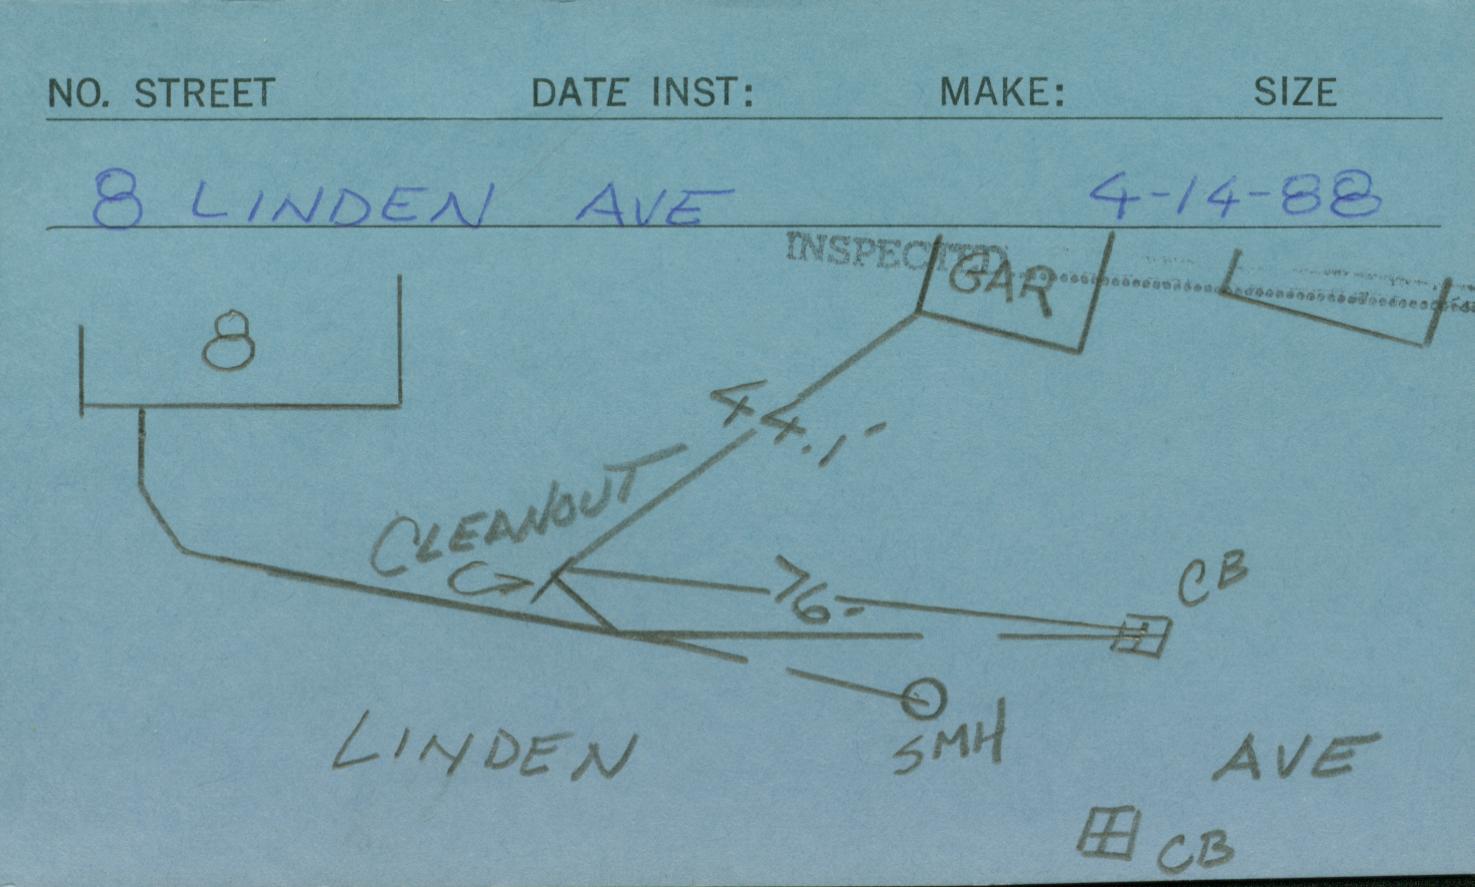 NO. STREET DATE INST: MAKE: SIZE
8 LINDEN AVE 4-14-88
INSPECTED
GAR
8
44.1'
CLEANOUT
76-
CB
LINDEN AVE
SMH
CB